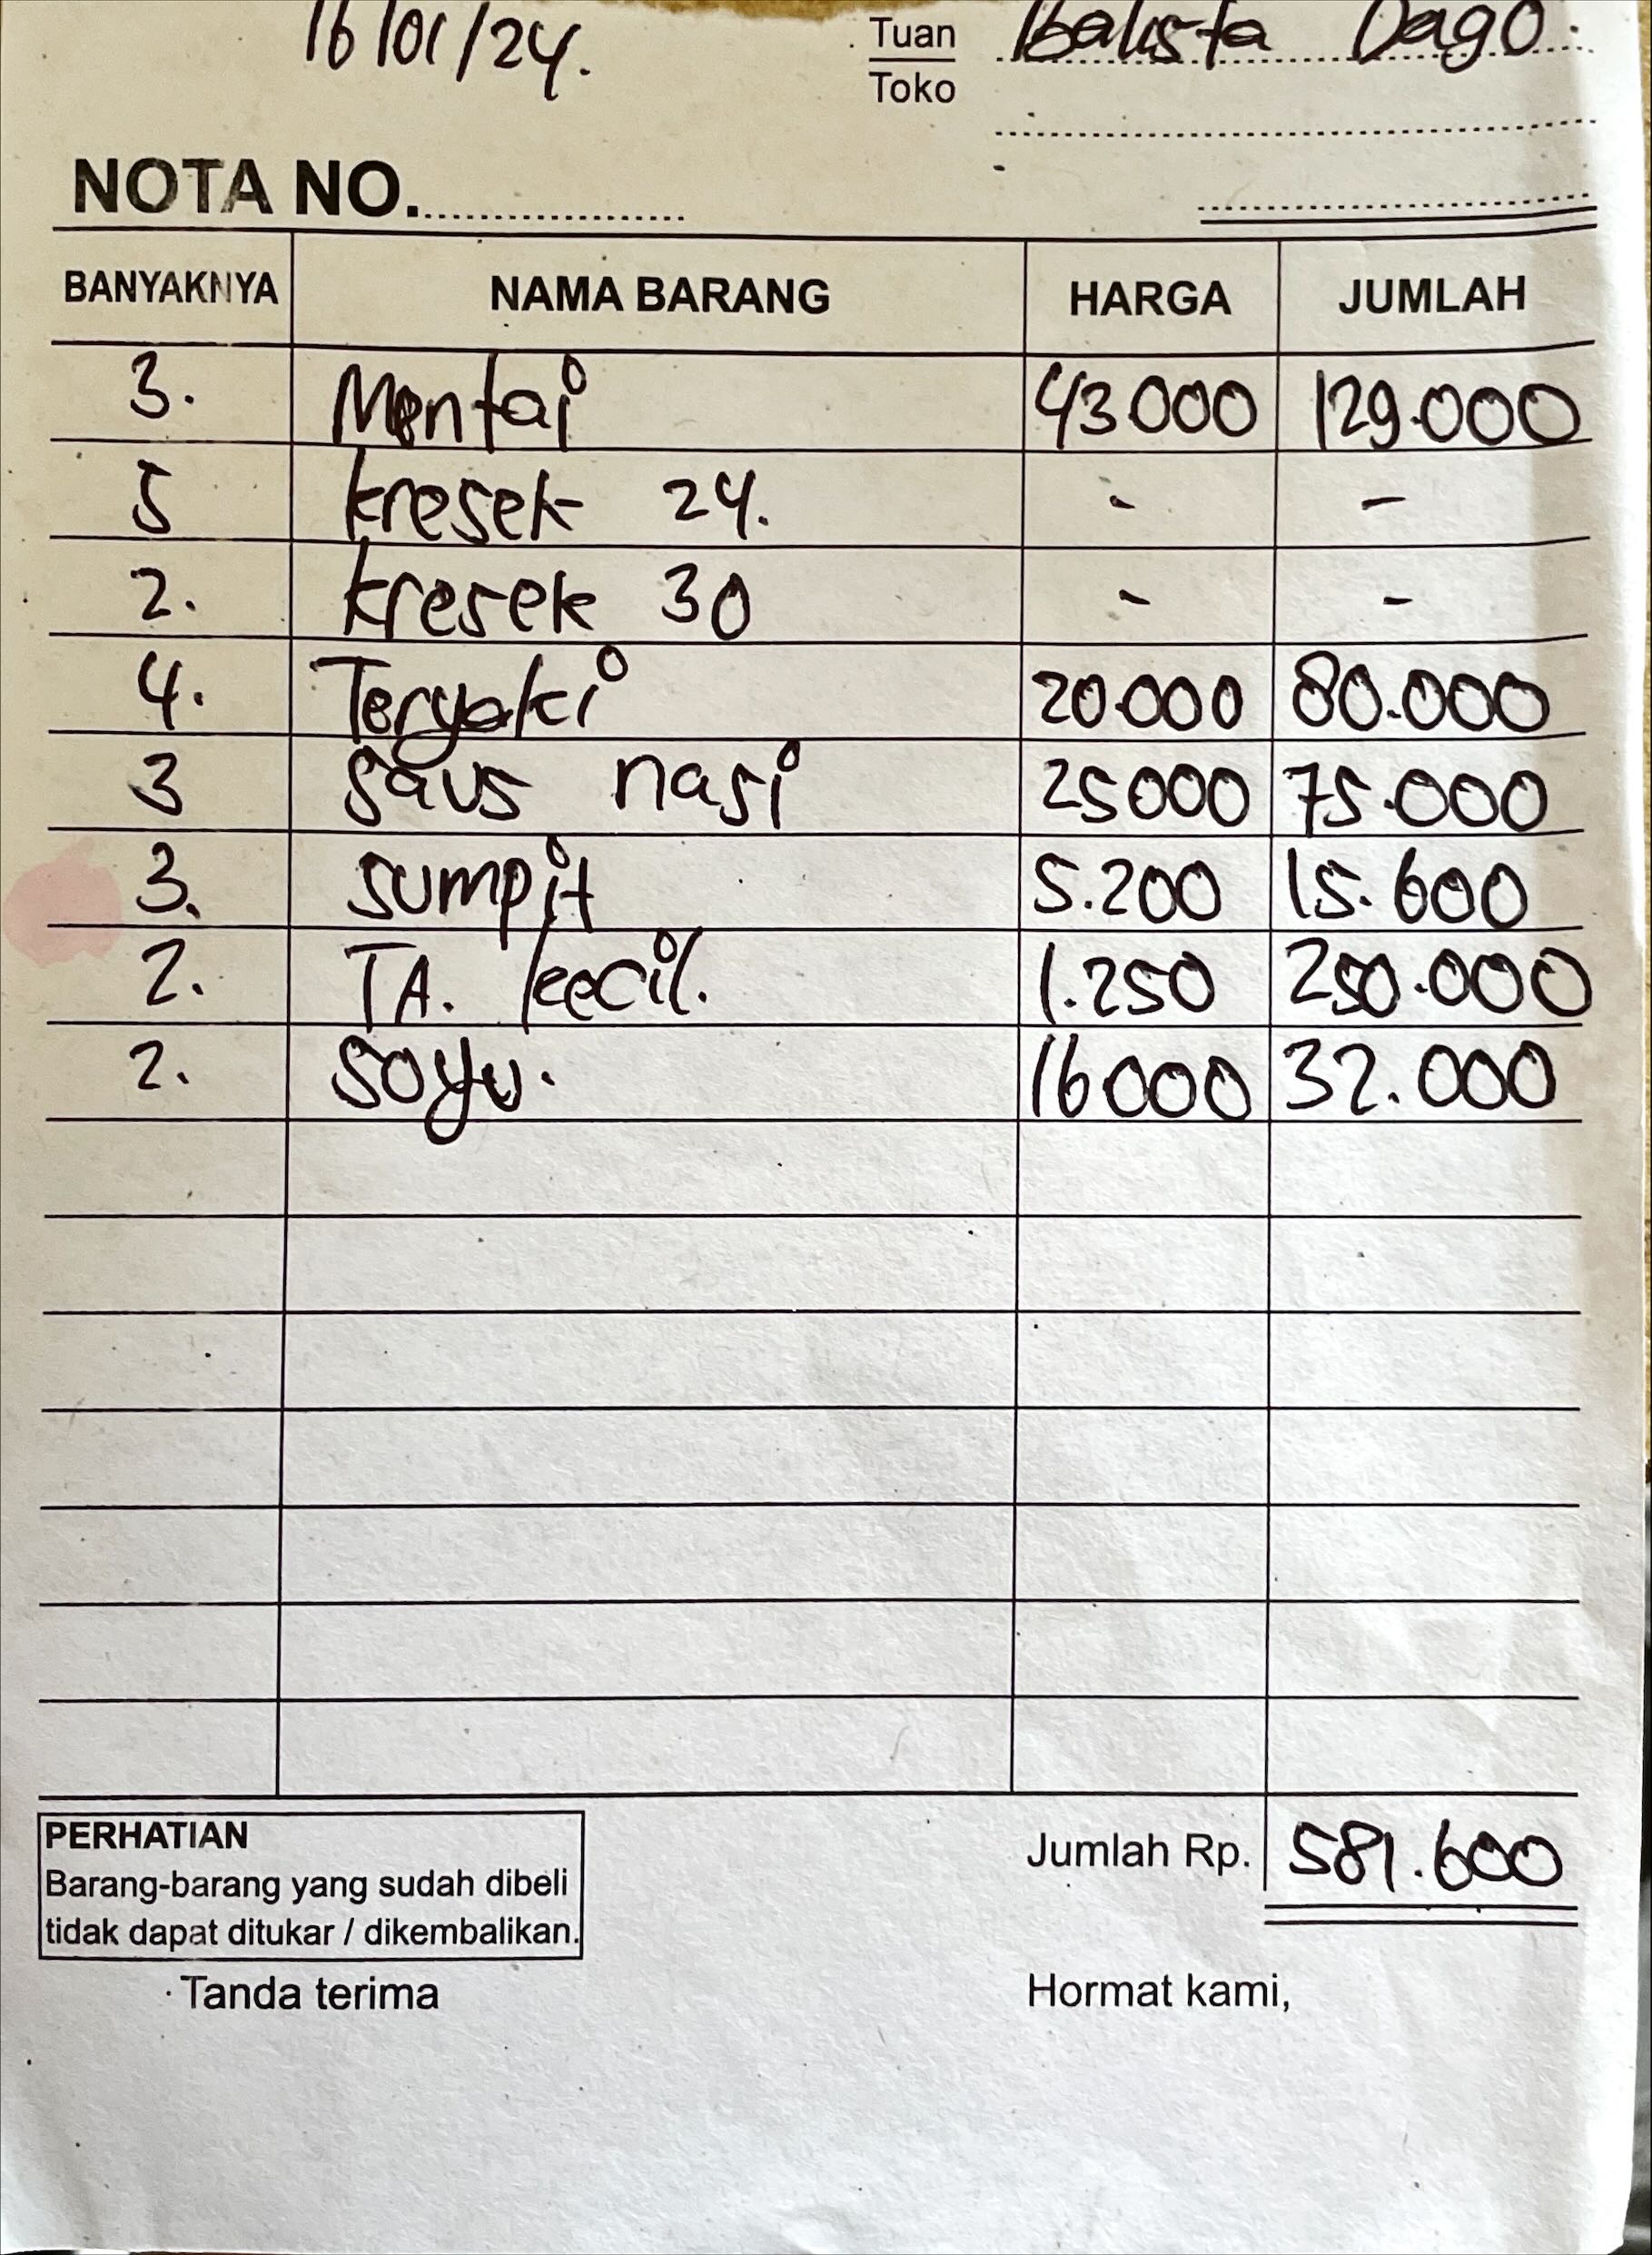 16/01/24. Tuan Dago.
Toko
NOTA NO.
BANYAKNYA NAMA BARANG HARGA JUMLAH
3. Mentai 43.000 129.000
5 kresek 24. - -
2. kresek 30 - -
4. Teryaki 20.000 80.000
3 saus nasi 25000 75.000
3. sumpit 5.200 15.600
2. TA. kecil. 1.250 250.000
2. soyu. 16000 32.000
PERHATIAN Jumlah Rp. 581.600
Barang-barang yang sudah dibeli
tidak dapat ditukar / dikembalikan.
Tanda terima Hormat kami,